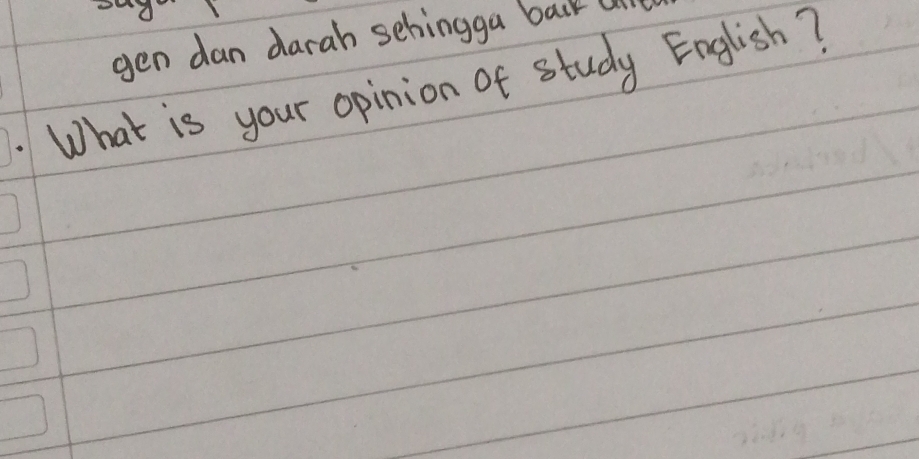 gen dan darah sehingga baik
. What is your opinion of study English?